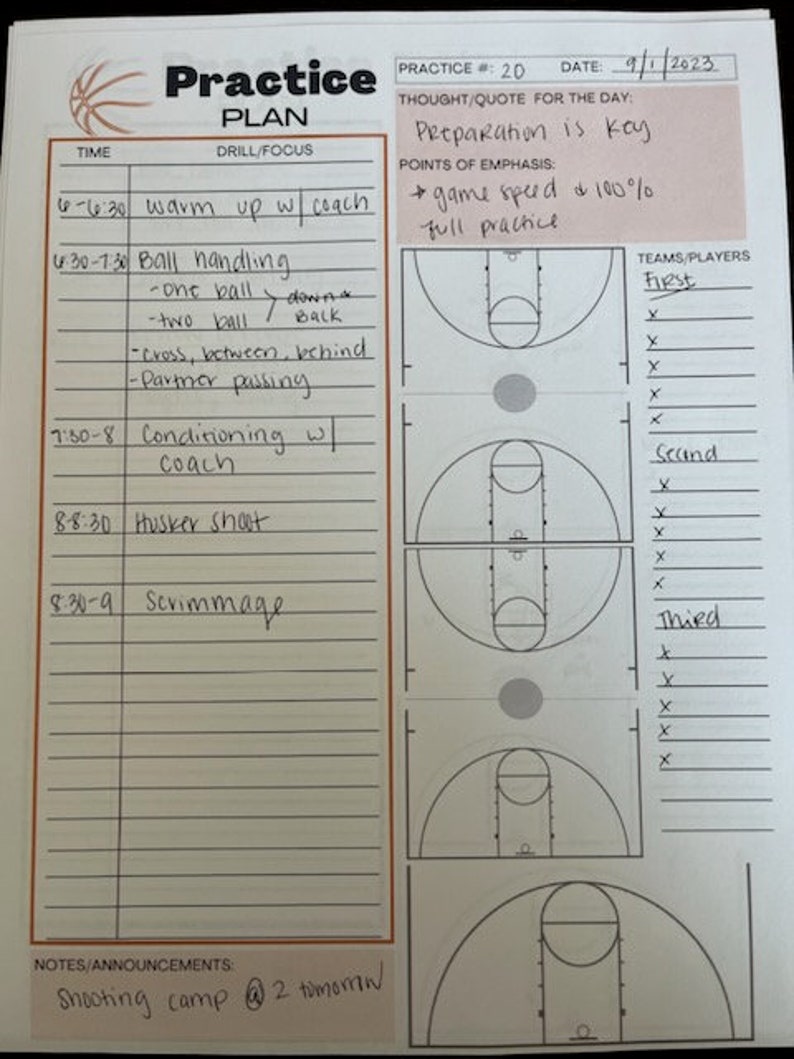 Practice
PLAN
PRACTICE #: 20 DATE: 9/1/2023
THOUGHT/QUOTE FOR THE DAY:
Preparation is key
POINTS OF EMPHASIS:
→ game speed & 100%
full practice
TIME DRILL/FOCUS
6-6:30 warm up w/ coach
6:30-7:30 Ball handling
-one ball > down &
-two ball Back
-cross, between, behind
-Partner passing
7:30-8 Conditioning w/
coach
8-8:30 Husker shoot
8:30-9 Scrimmage
TEAMS/PLAYERS
First
x
x
x
x
x
Second
x
x
x
x
x
Third
x
x
x
x
x
NOTES/ANNOUNCEMENTS:
Shooting camp @ 2 tomorrow